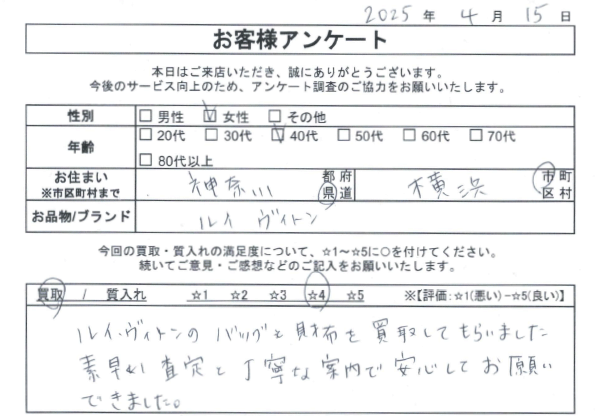 2025 年 4 月 15 日
お客様アンケート
本日はご来店いただき、誠にありがとうございます。
今後のサービス向上のため、アンケート調査のご協力をお願いいたします。
性別 □ 男性 ☑ 女性 □ その他
年齢 □ 20代 □ 30代 ☑ 40代 □ 50代 □ 60代 □ 70代
□ 80代以上
お住まい 神奈川 都 府 横浜 市 町
※市区町村まで 県 道 区 村
お品物/ブランド ルイ ヴィトン
今回の買取・質入れの満足度について、☆1〜☆5に○を付けてください。
続いてご意見・ご感想などのご記入をお願いいたします。
買取 / 質入れ ☆1 ☆2 ☆3 ☆4 ☆5 ※【評価：☆1(悪い)−☆5(良い)】
ルイ・ヴィトンの バッグと 財布を 買取してもらいました
素早い 査定と 丁寧な 案内で 安心して お願い
できました。